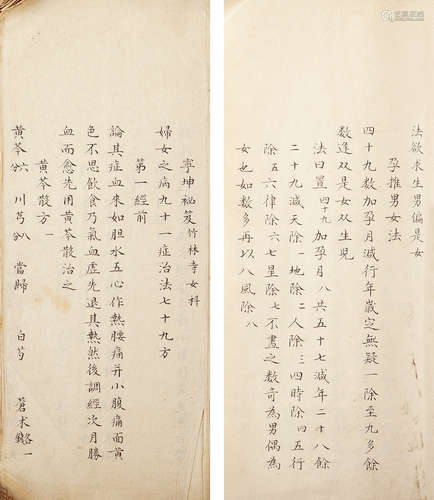 法欲求生男偏是女
孕推男女法
四十九数加孕月減行年歲定無疑一除至九多餘
数逢双是女双生兒
法曰置四十九加孕月八共五十七減年二十八餘
二十九減天除一地除二人除三四時除四五行
除五六律除六七星除七不盡之数奇為男偶為
女也如数多再以八風除八
寧坤祕笈竹林寺女科
婦女之病九十一症治法七十九方
第一經前
論其症血来如胆水五心作熱腰痛并小腹痛面黄
色不思飲食乃氣血虛先退其熱然後調經次月勝
血而愈先用黄芩散治之
黄芩散方
黄芩六分 川芎八分 當歸 白芍 蒼术各一錢